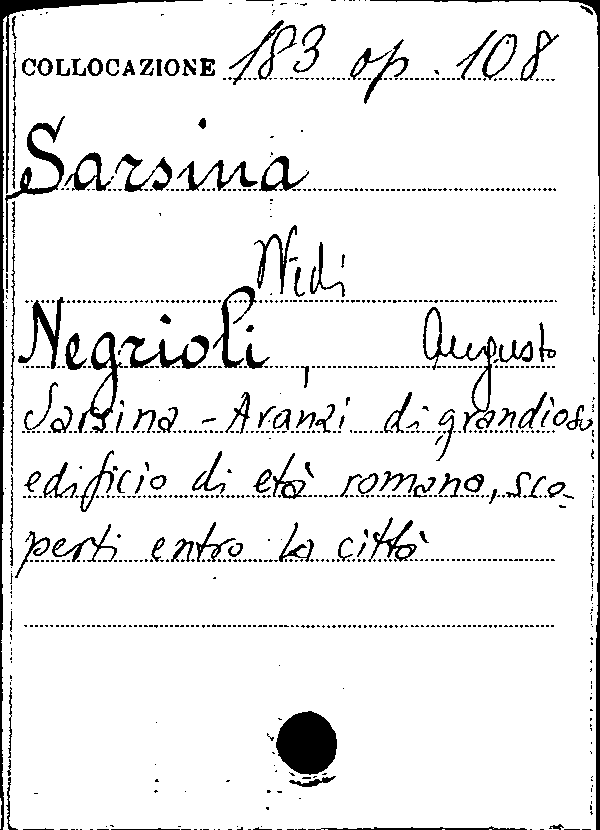 COLLOCAZIONE 183 op. 108
Sarsina
Vedi
Negrioli, Augusto
Sarsina - Avanzi di grandioso
edificio di età romana, sco-
perti entro la città